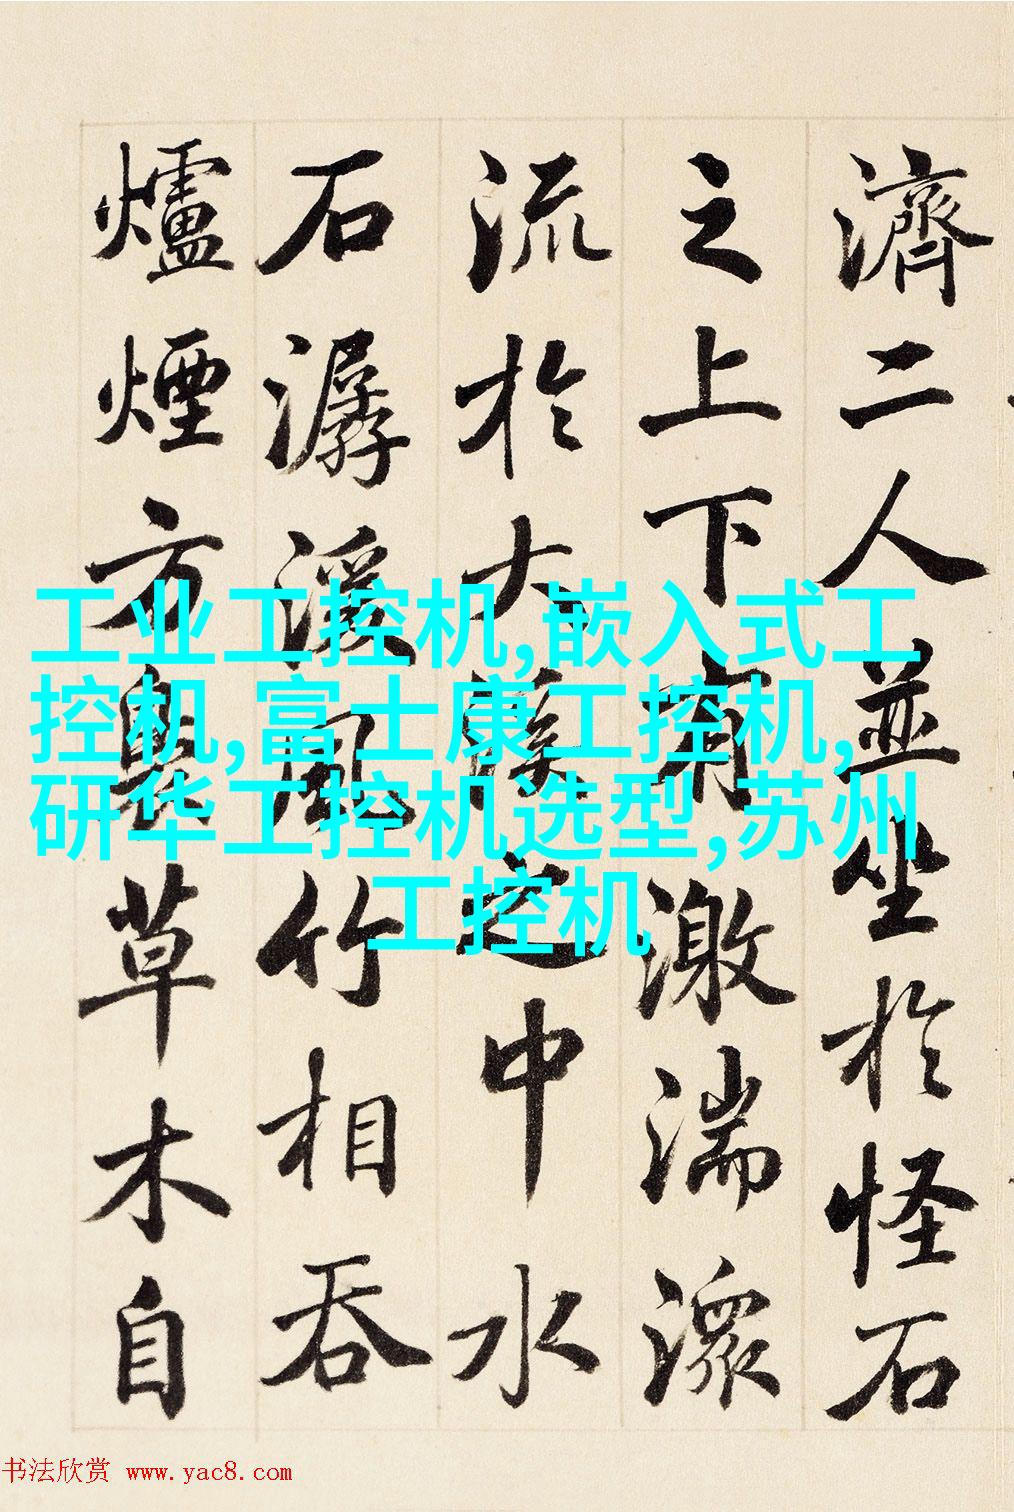 濟二人並坐於怪石
之上下有激湍潀
流於大溪之中水
石潺湲風竹相吞
爐煙方裊草木自
工业工控机,嵌入式工
控机,富士康工控机,
研华工控机选型,苏州
工控机
书法欣赏 www.yac8.com